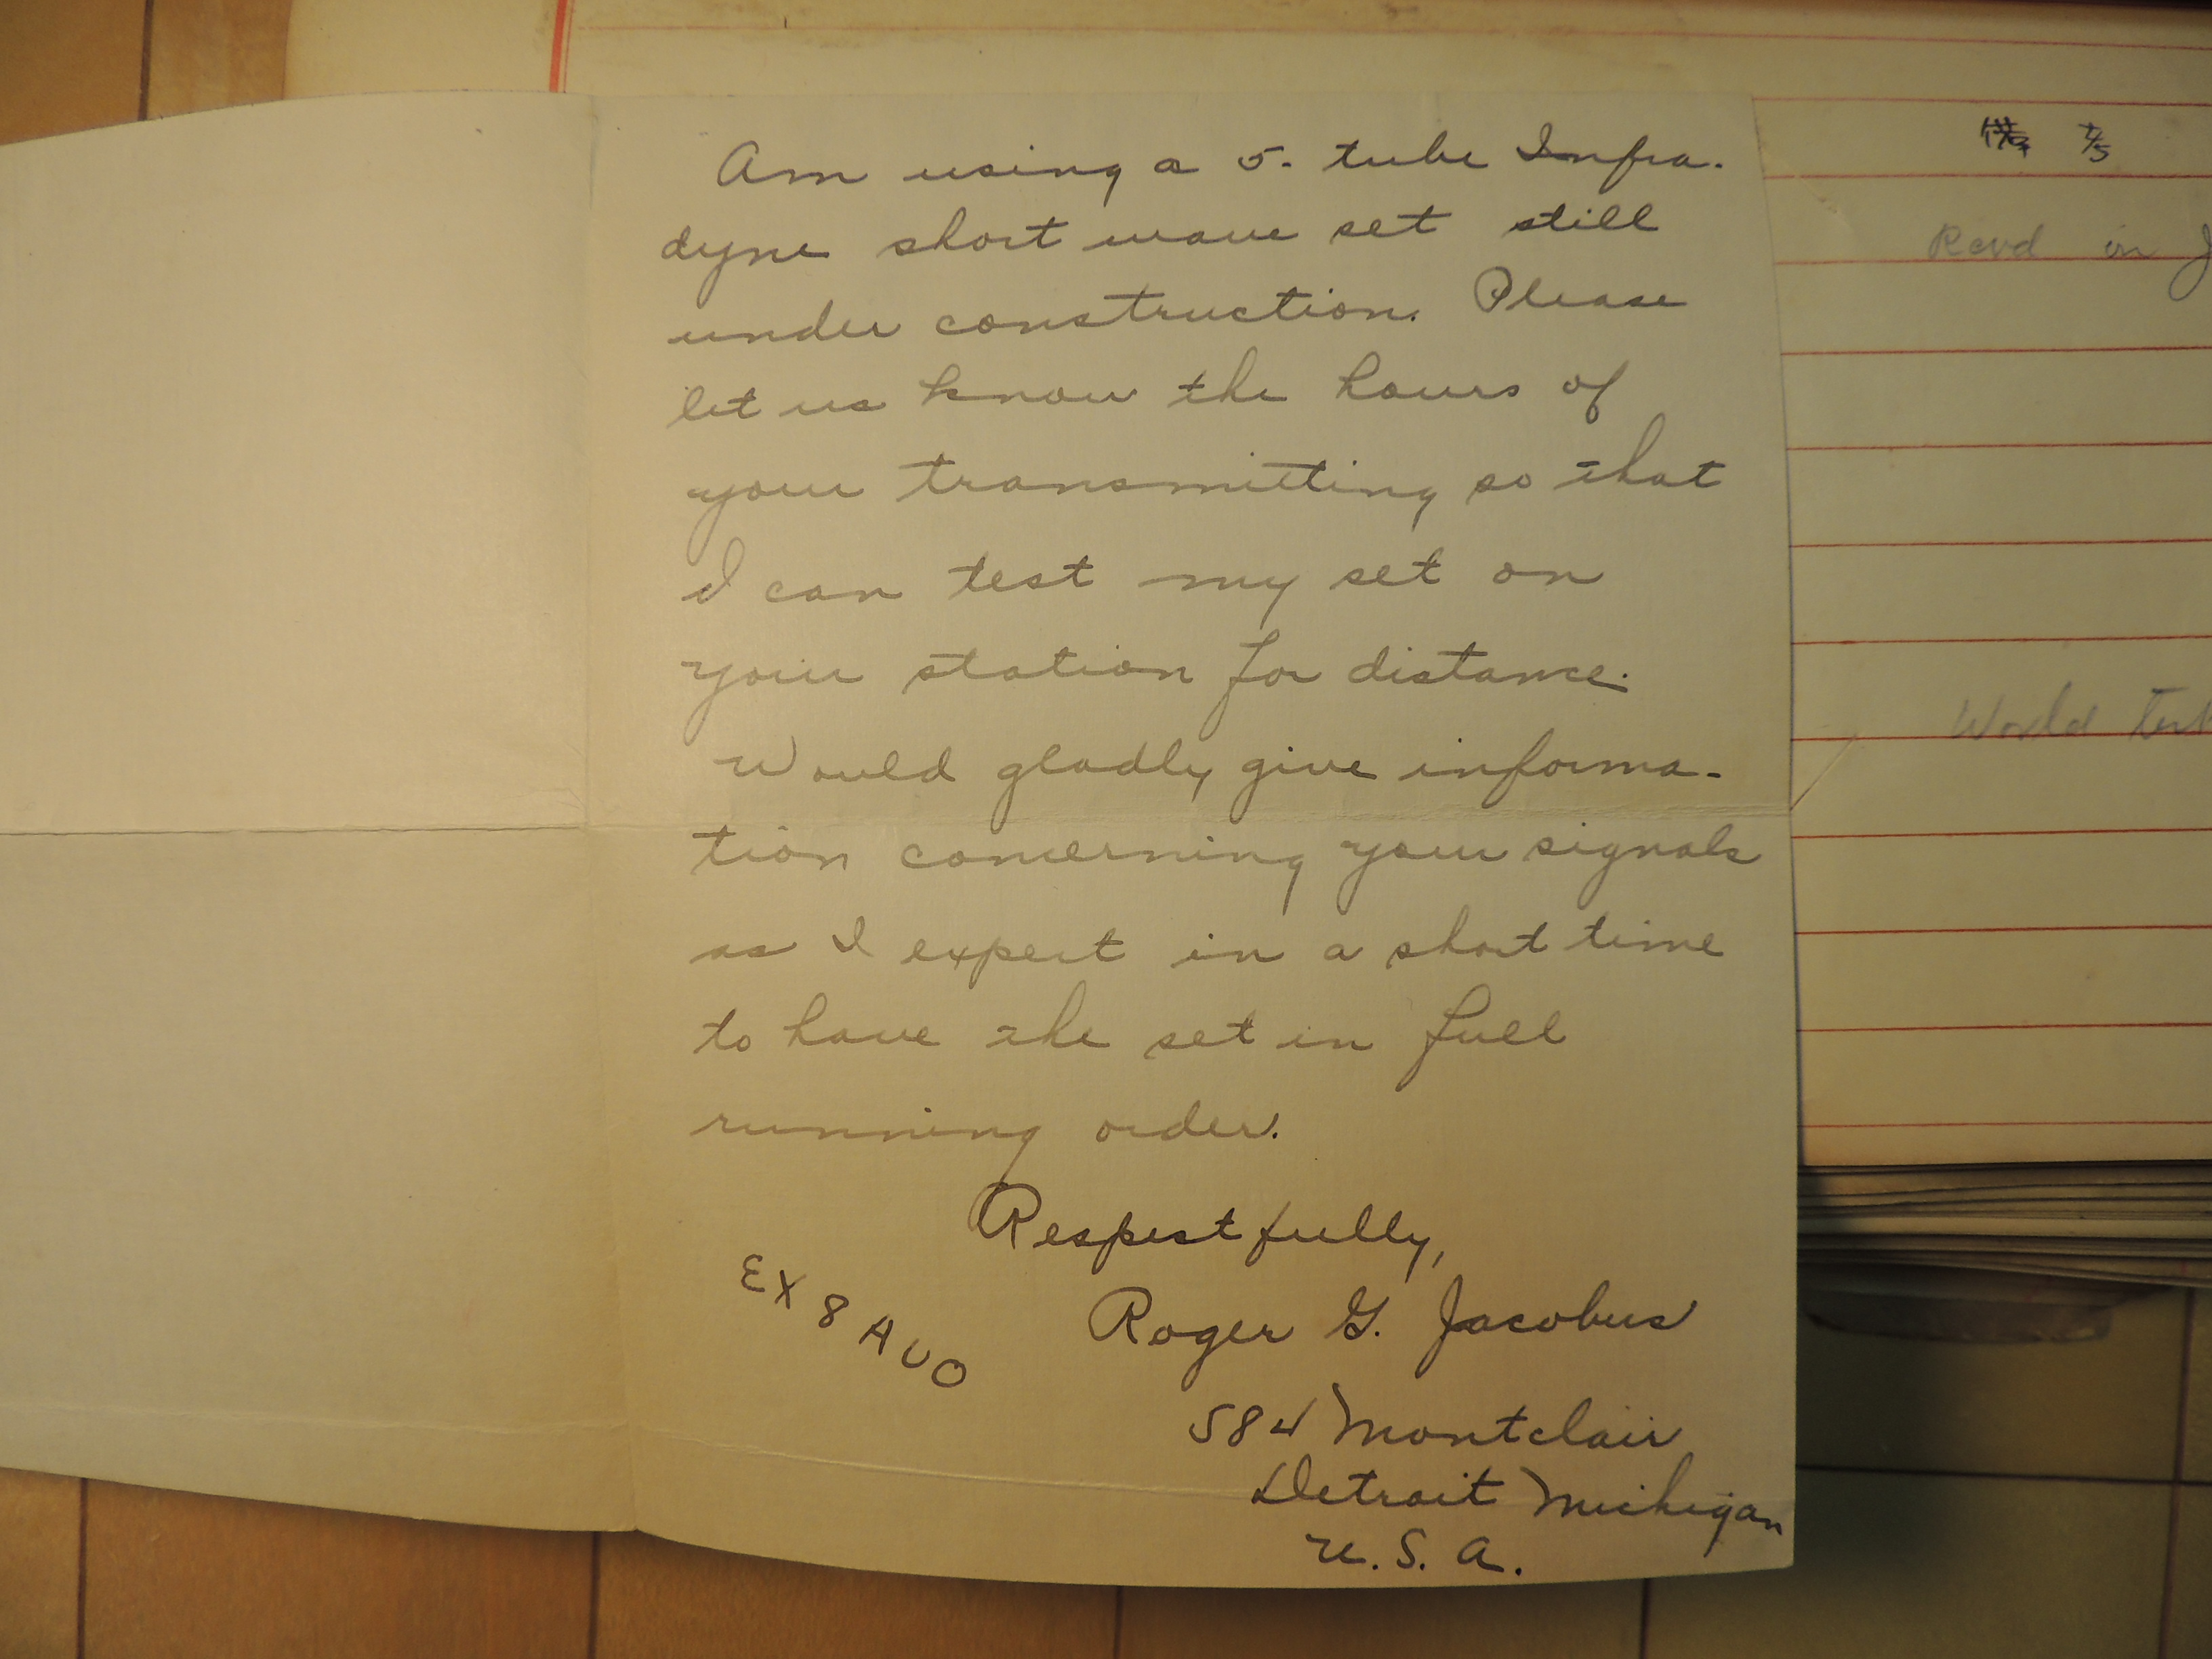 Am using a 5. tube Infra-
dyne short wave set still
under construction. Please
let us know the hours of
your transmitting so that
I can test my set on
your station for distance.
Would gladly give informa-
tion concerning your signals
as I expect in a short time
to have the set in full
running order.
Respectfully,
EX 8 AUO
Roger G. Jacobus
584 Montclair
Detroit Michigan
U. S. A.
Recvd in J
World